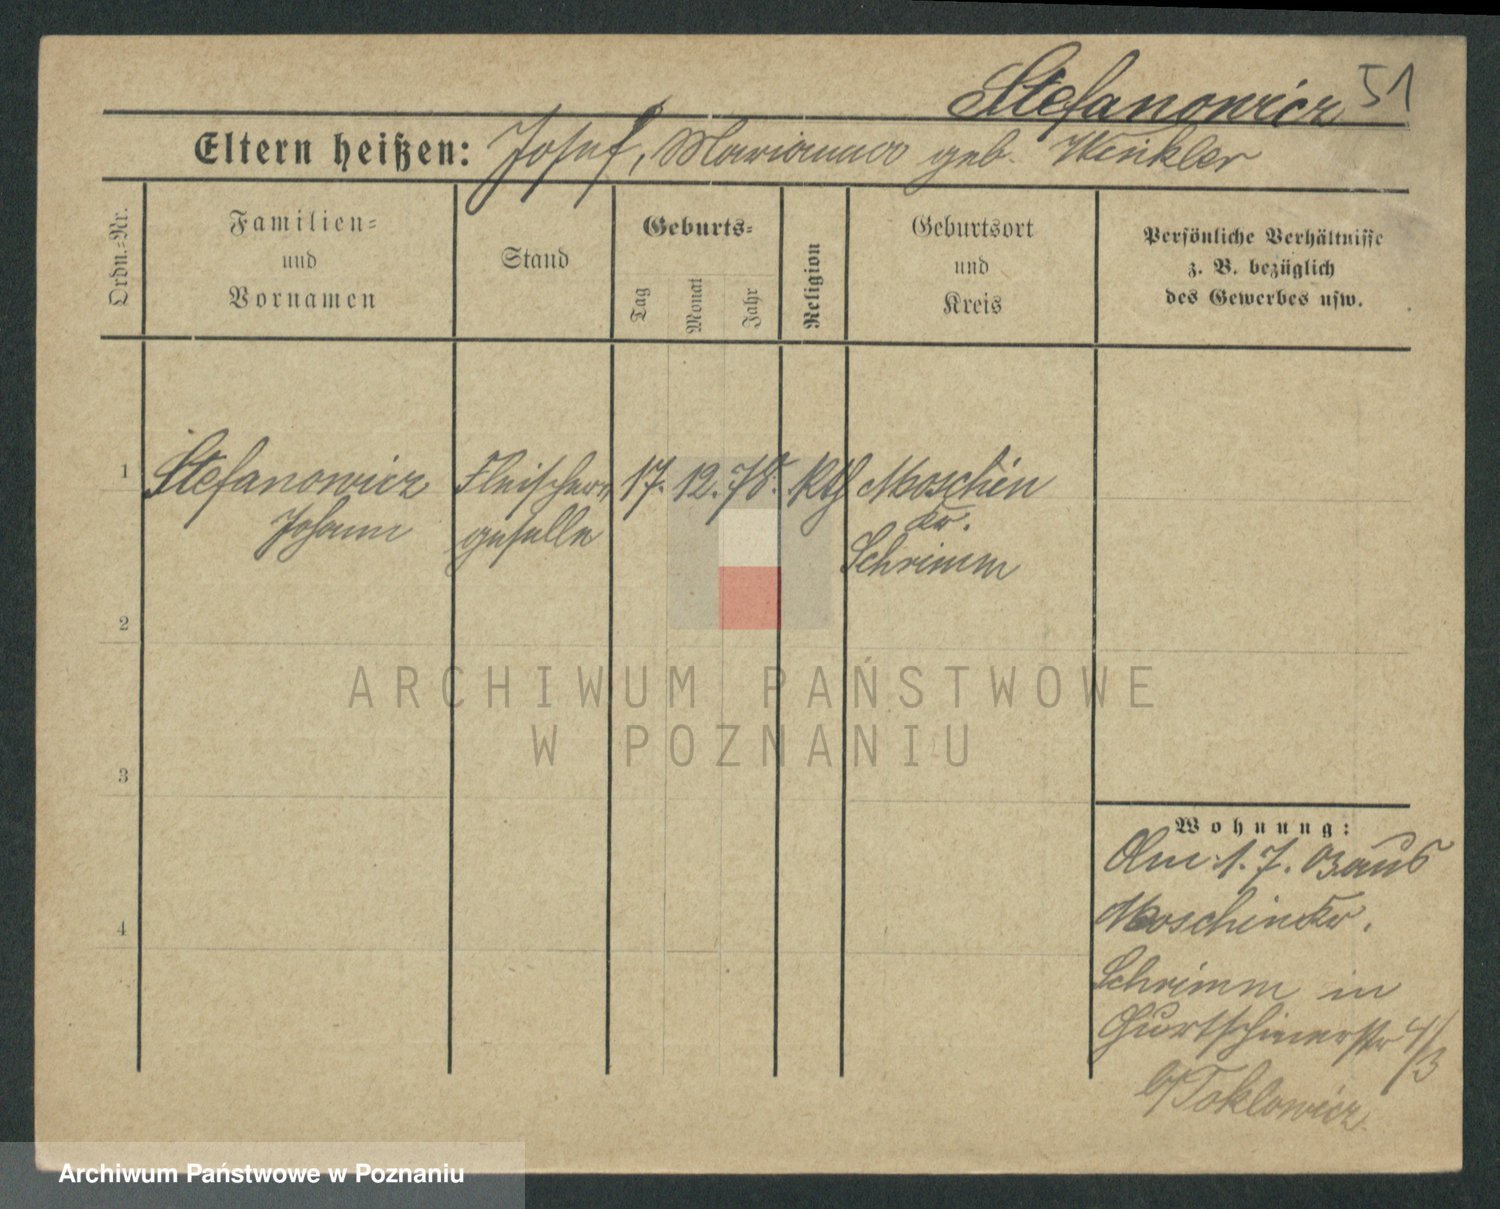 Stefanowicz 51
Eltern heißen: Josef, Marianna geb. Winkler
Ordn.=Nr.
Familien=
und
Vornamen
Stand
Geburts=
Tag
Monat
Jahr
Religion
Geburtsort
und
Kreis
Persönliche Verhältnisse
z. B. bezüglich
des Gewerbes usw.
1 Stefanowicz Fleischer 17. 12. 78. Kth Moschin
Johann geselle Kr.
Schrimm
2
3
4
Wohnung:
Am 1.7.03 aus
Moschin Kr.
Schrimm in
Gurtschinerstr 4/3
b/Toklowicz
ARCHIWUM PAŃSTWOWE
W POZNANIU
Archiwum Państwowe w Poznaniu